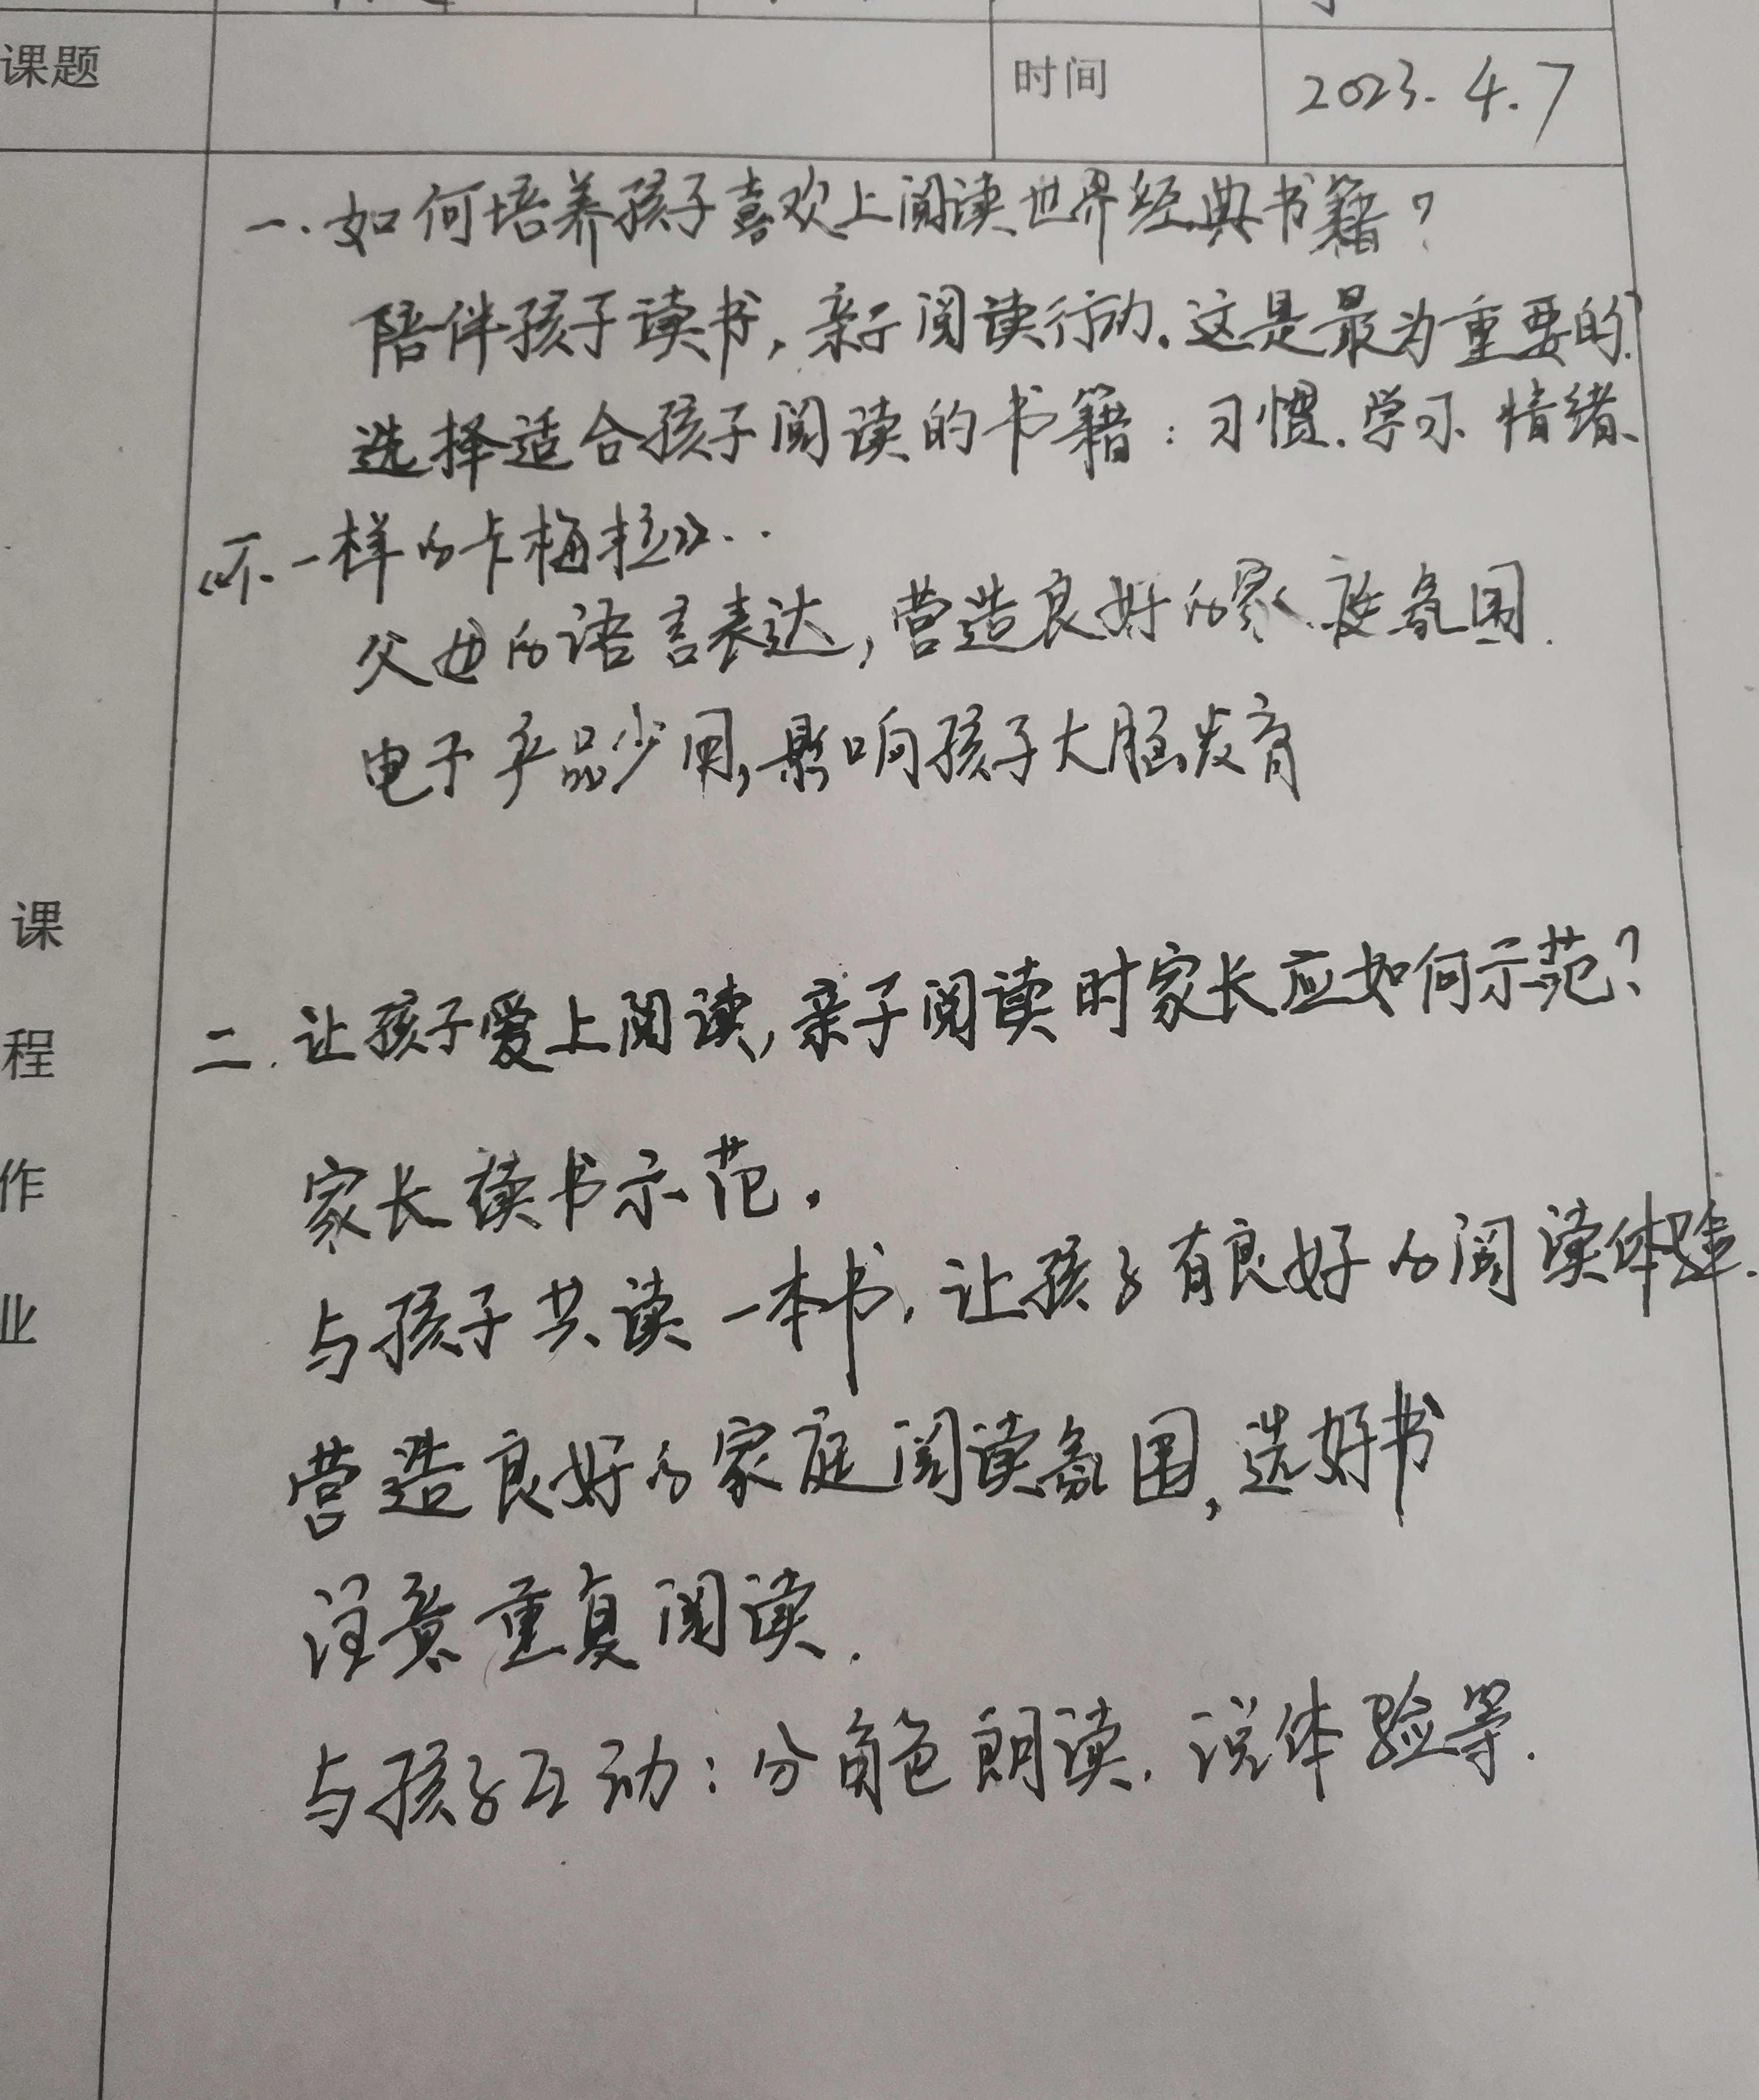 课题 时间 2023.4.7
一.如何培养孩子喜欢上阅读世界经典书籍?
陪伴孩子读书,亲子阅读行动.这是最为重要的.
选择适合孩子阅读的书籍:习惯.学习.情绪、
《不一样的卡梅拉》..
父母的语言表达,营造良好的家庭氛围.
电子产品少用,影响孩子大脑发育
二.让孩子爱上阅读,亲子阅读时家长应如何示范?
家长读书示范.
与孩子共读一本书.让孩子有良好的阅读体验.
营造良好的家庭阅读氛围,选好书
注意重复阅读.
与孩子互动:分角色朗读.说体验等.
课
程
作
业